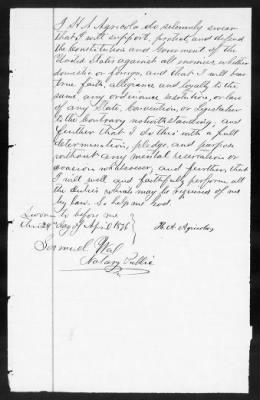 I H A Agricola do solemnly swear
that I will support, protect, and defend
the Constitution and Government of the
United States against all enemies, whether
domestic or foreign, and that I will bear
true faith, allegiance and loyalty to the
same, any ordinance, resolution, or law
of any State, Convention, or Legislature
to the contrary notwithstanding, and
further that I do this with a full
determination, pledge, and purpose
without any mental reservation or
evasion whatsoever, and further, that
I will well and faithfully perform all
the duties which may be required of me
by law. So help me God.
Sworn to before me
this 24th day of April 1876
H. A. Agricola
Samuel
Notary Public